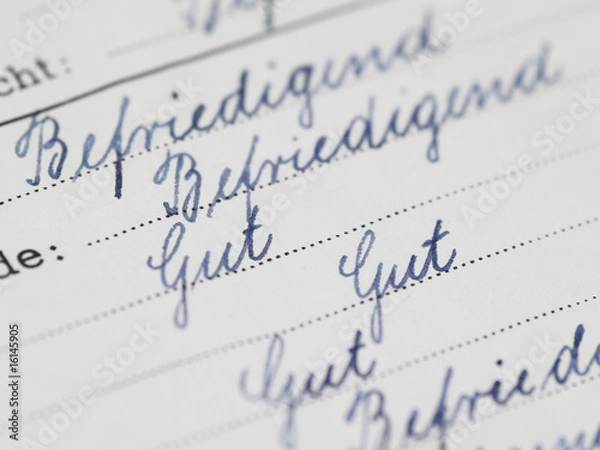 cht:
Befriedigend
Befriedigend
de:
Gut Gut
Gut
Befriede
Adobe Stock | #16145905